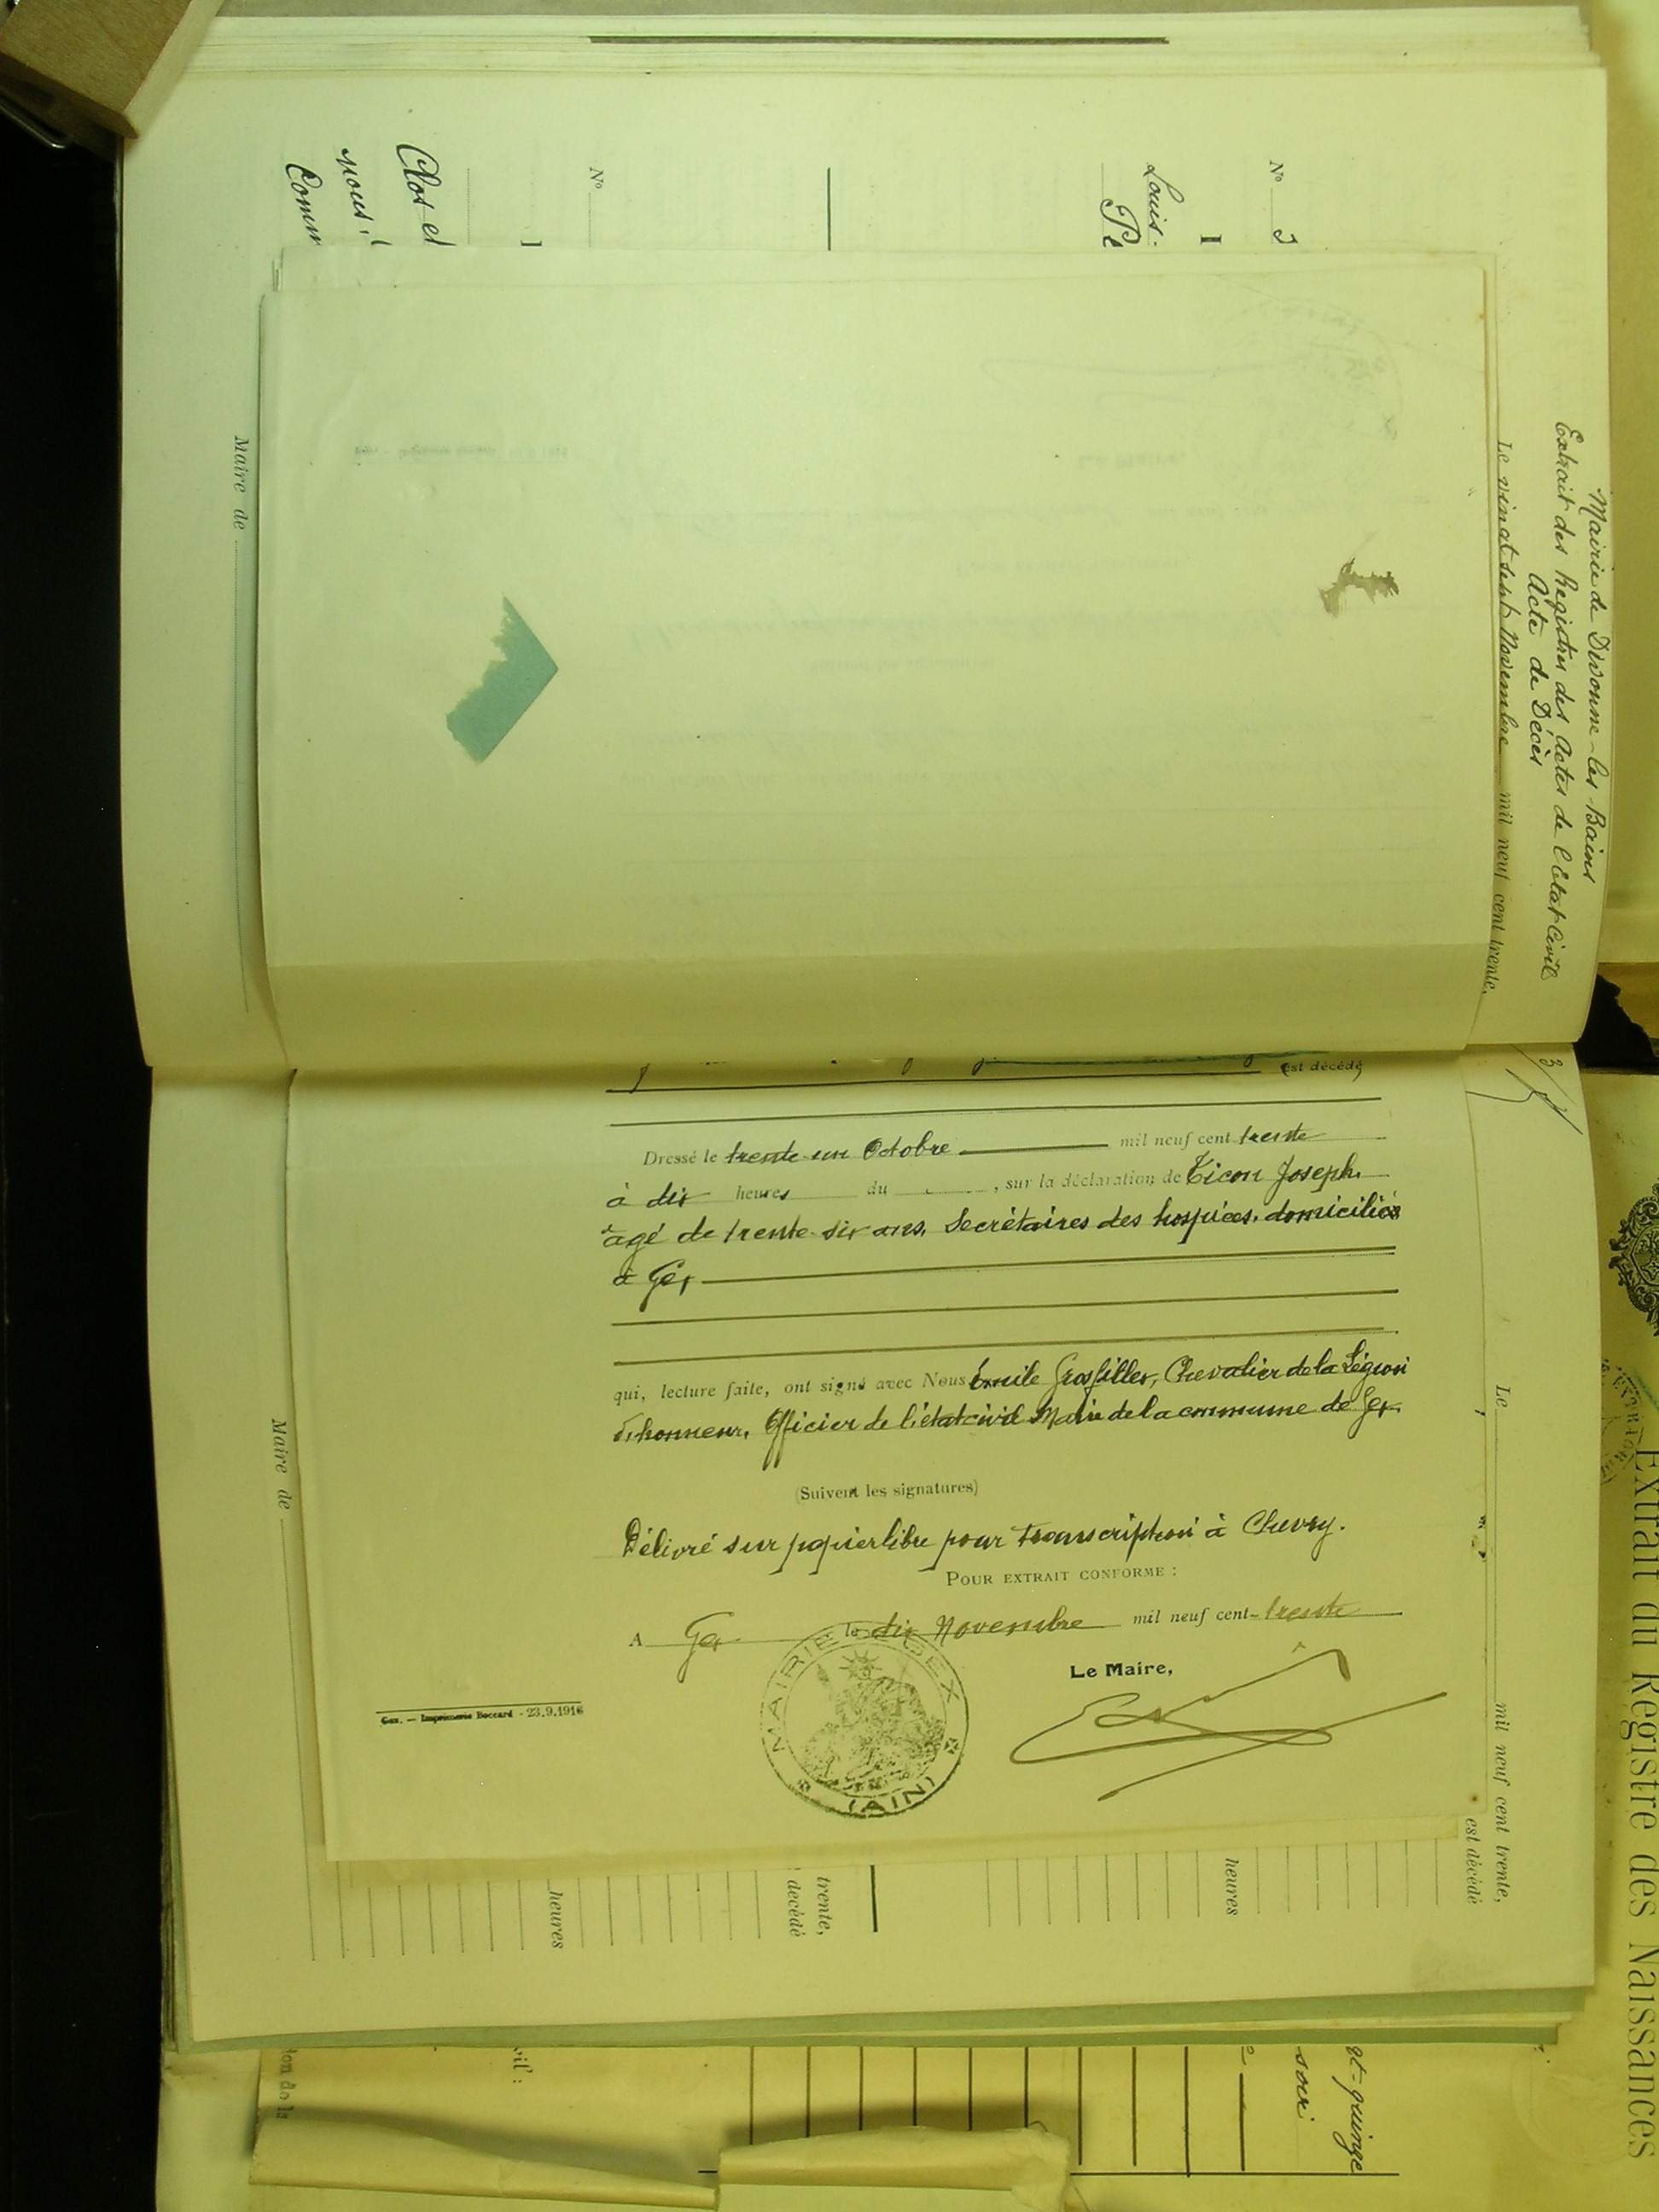 Mairie de Divonne-les-Bains
Extrait des Registres des Actes de l'Etat-Civil
Acte de Décès
Le vingt sept Novembre mil neuf cent trente,
Nº 3
I
Louis-
Nº
Clos et
nous,
Comm
Maire de
est décédé
Dressé le trente-un Octobre mil neuf cent trente
à dix heures du , sur la déclaration de Ticon Joseph.
âgé de trente-six ans, Secrétaires des hospices, domiciliés
à Gex
qui, lecture faite, ont signé avec Nous Émile Grosfiller, Chevalier de la Légion
d'honneur, Officier de l'état-civil Maire de la commune de Gex.
(Suivent les signatures)
Délivré sur papier libre pour transcription à Chevry.
POUR EXTRAIT CONFORME :
A Gex le dix Novembre mil neuf cent-trente
Le Maire,
MAIRIE DE GEX
(AIN)
Gex. — Imprimerie Boccard - 23.9.1916
Le mil neuf cent trente,
est décédé
heures
trente,
décédé
heures
Maire de
Extrait du Registre des Naissances
soir